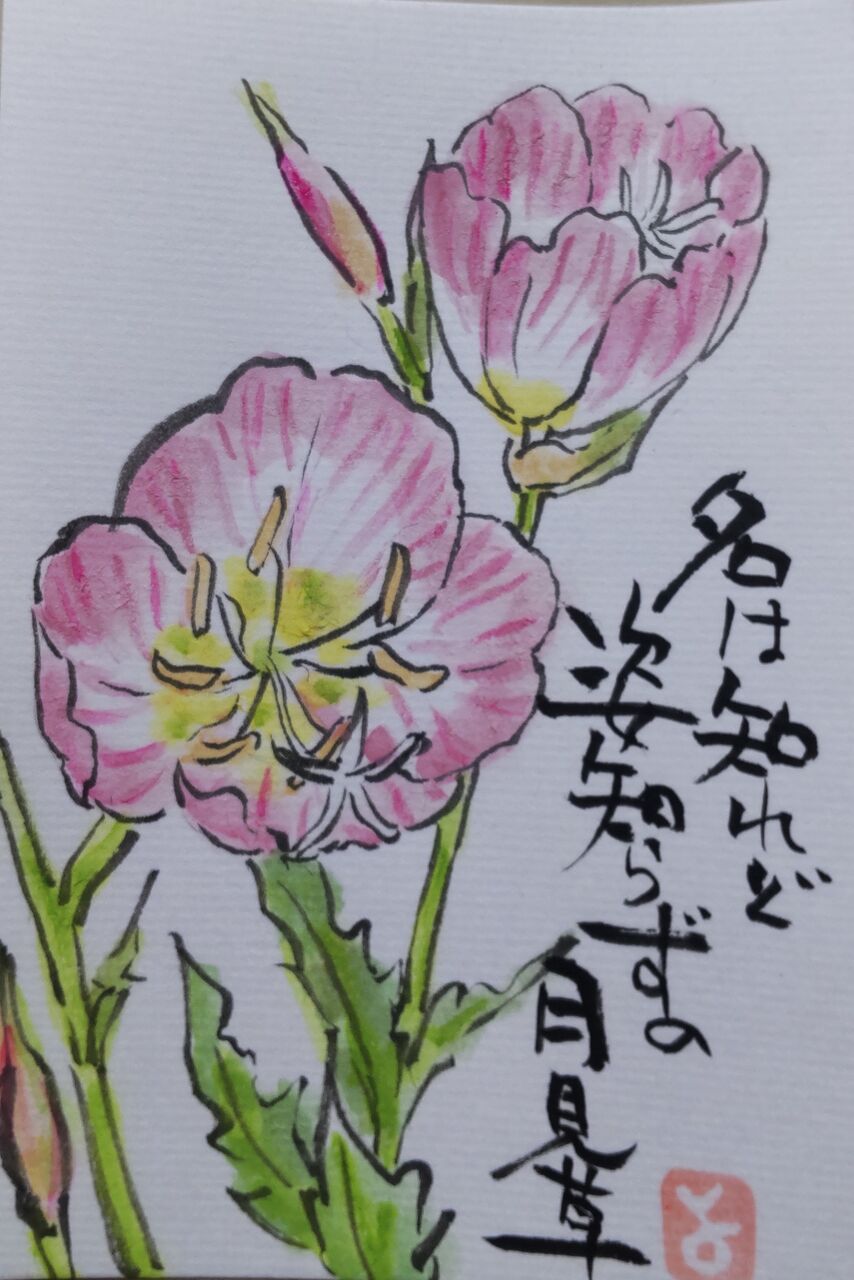 名は知れど
姿知らずの
月見草
よ